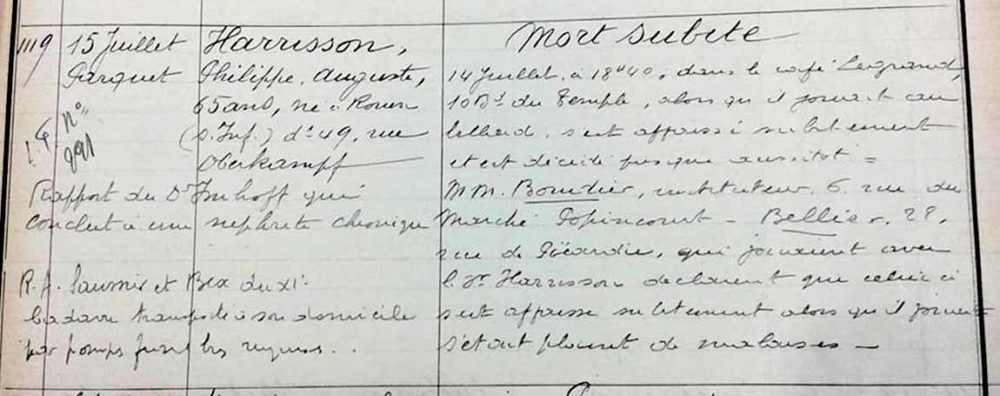 1119 15 Juillet Harrisson, Mort subite
Parquet Philippe, Auguste, 14 Juillet, à 18h40, dans le café Legrand,
n° 65 ans, né à Rouen 10 Bd du Temple, alors qu'il jouait au
(S. Inf.) dt 49, rue billard, s'est affaissé subitement
Oberkampf et est décédé presque aussitôt =
Rapport du Dr Imhoff qui MM. Bourdier, instituteur, 6, rue du
conclut à une nephrite chronique Marché Popincourt - Bellier, 28,
rue de Picardie, qui jouaient avec
R.A. Saumis et Bex du XIe le Sr Harrisson déclarent que celui ci
Cadavre transporté à son domicile s'est affaissé subitement alors qu'il jouait
par pompes funèbres requises .. s'étant plaint de malaises -